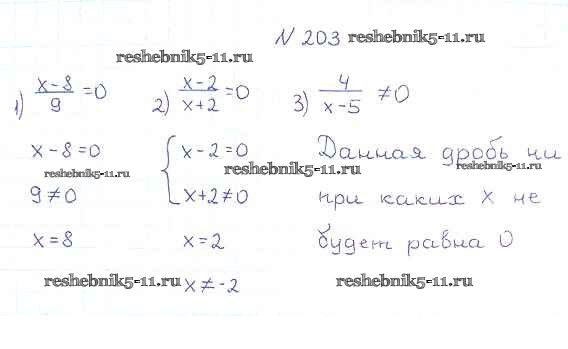 N 203 reshebnik5-11.ru
reshebnik5-11.ru
1) (x-8)/9 =0 2) (x-2)/(x+2) =0 3) 4/(x-5) ≠0
x-8=0 { x-2=0 Данная дробь ни
reshebnik5-11.ru reshebnik5-11.ru reshebnik5-11.ru
9≠0 x+2≠0 при каких x не
x=8 x=2 будет равна 0
reshebnik5-11.ru x≠-2 reshebnik5-11.ru